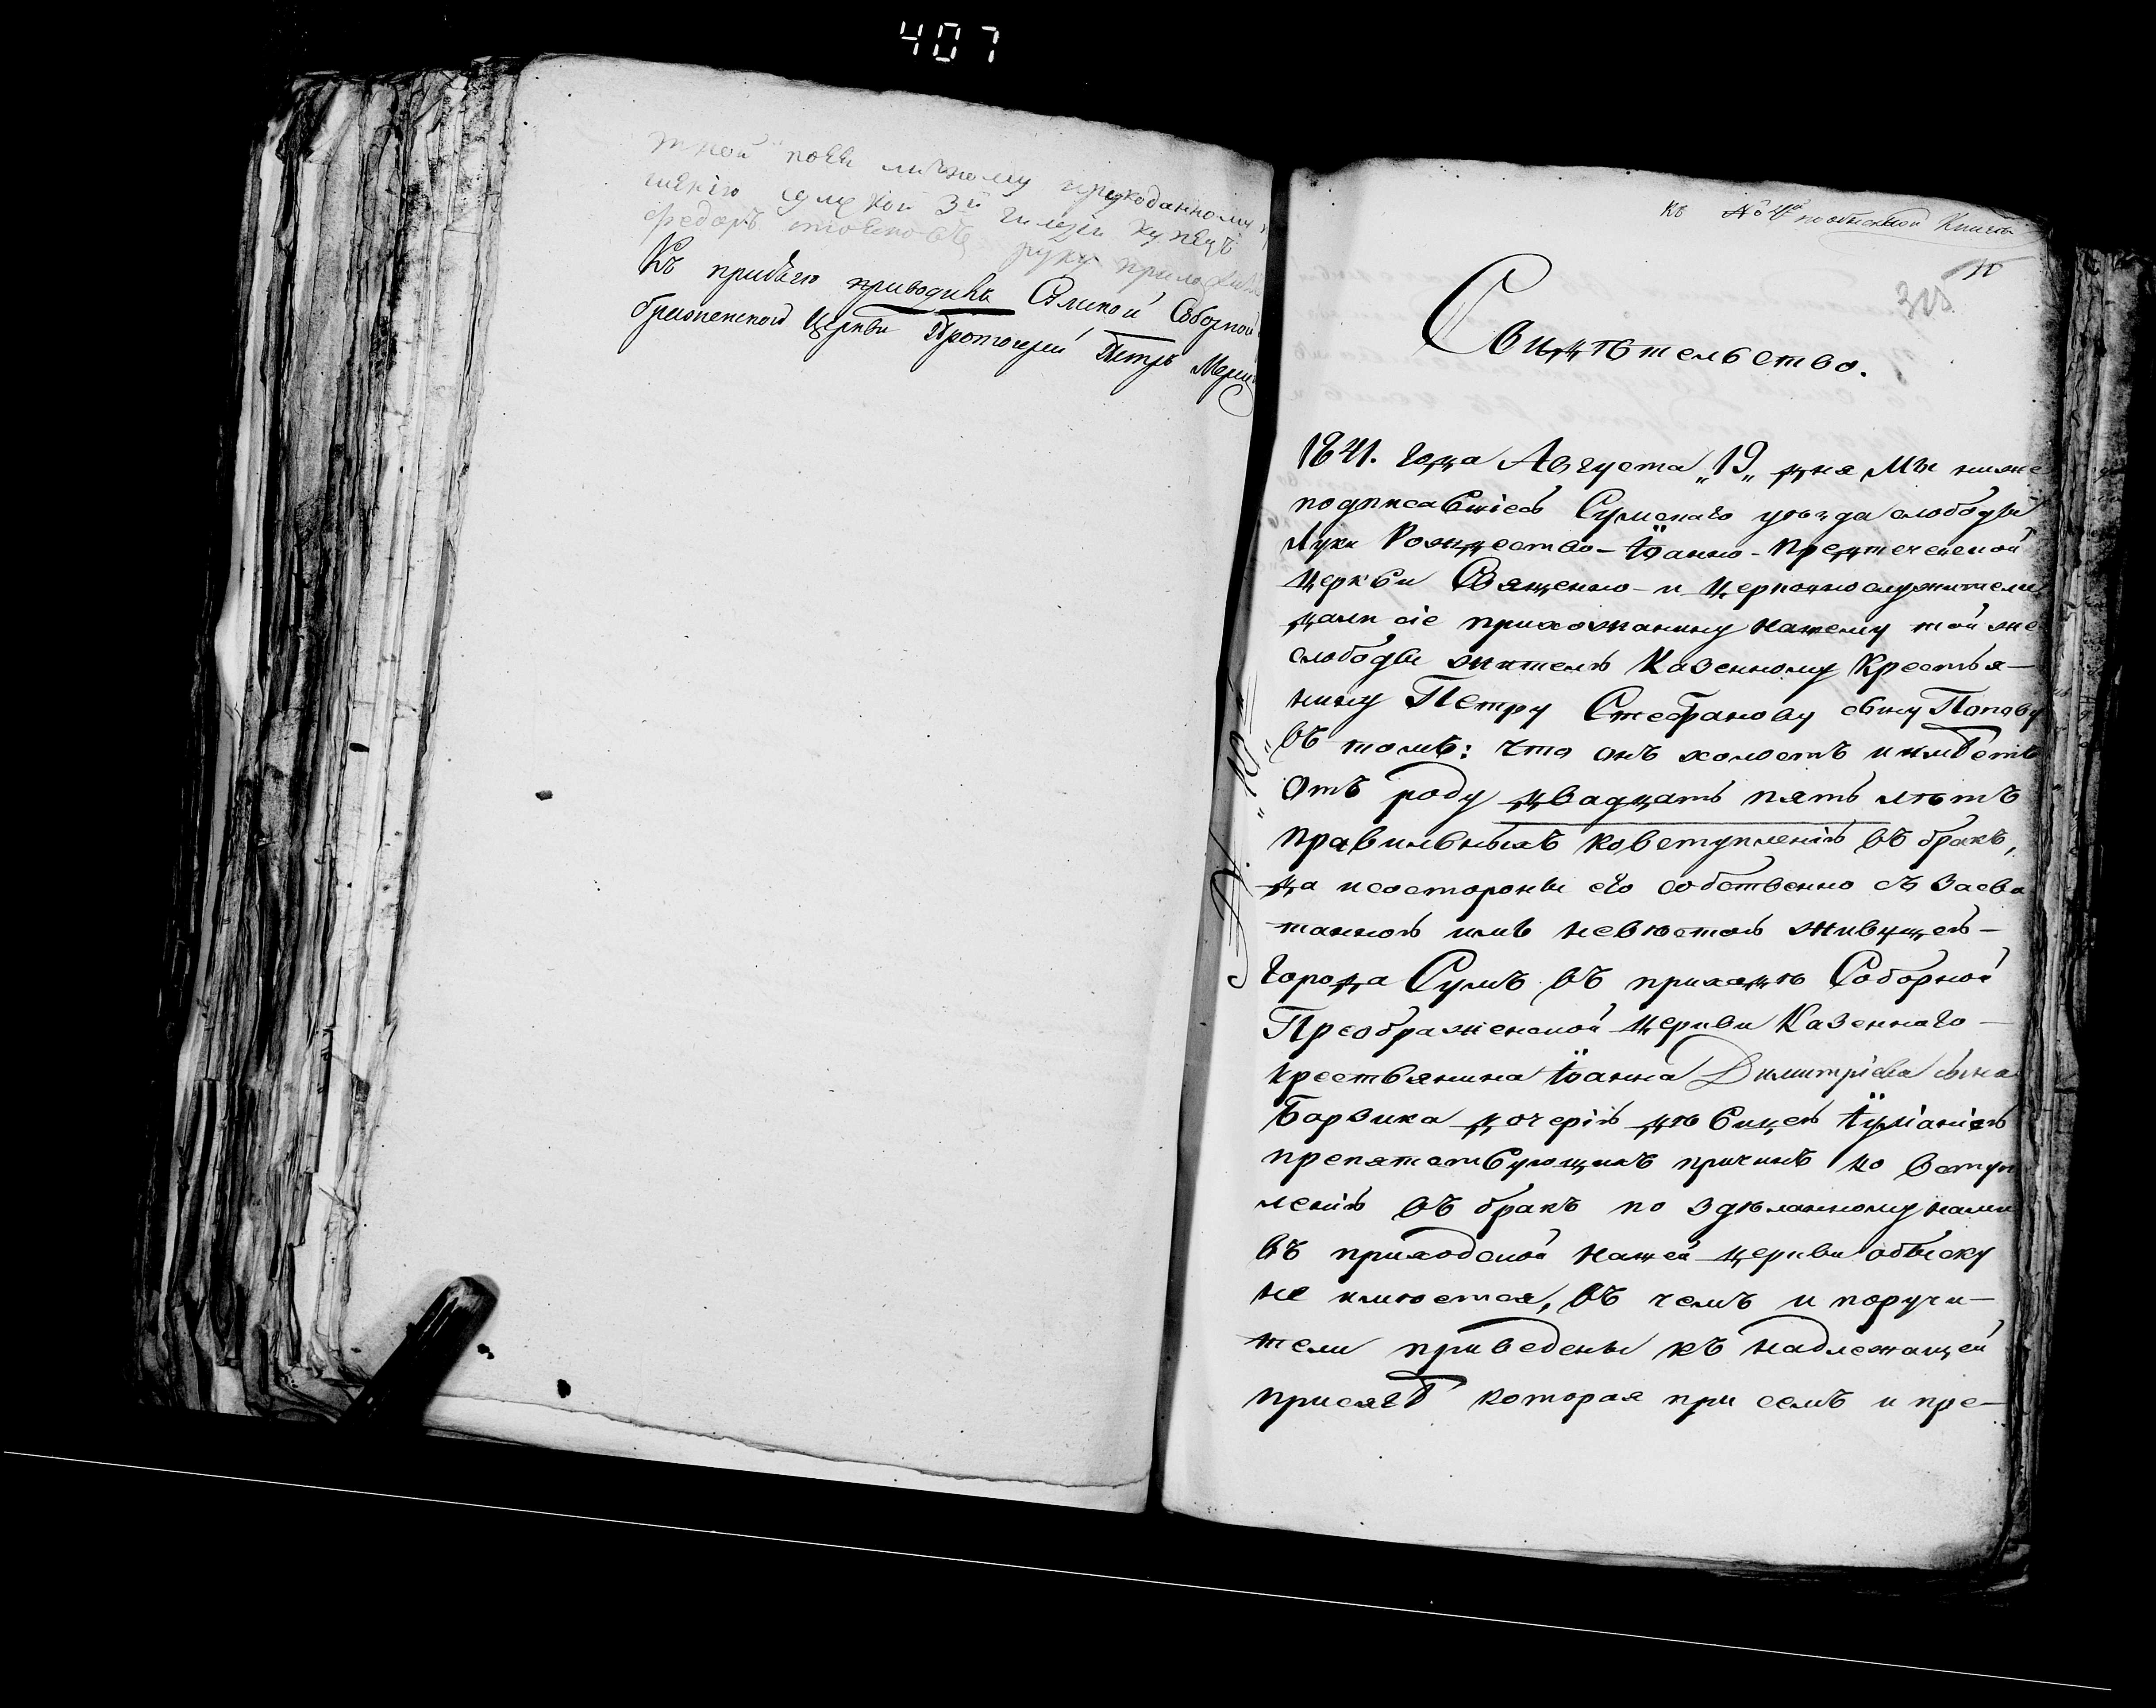 407
тной поеи личному прукоданному
шенію сумской 3й гилдіи купецъ
федоръ руку прилож
Къ присягѣ приводилъ Сумской Соборной
браженской Церкви Протоіерей Петръ
Къ № 4й по обыскной Книгѣ
10
315
Свидѣтельство.
1841. Года Августа „19„ дня Мы ниже
подписавшіесь Сумскаго уѣзда слободы
Луки Рождество-Іоанно-Предтеченской
Церкви Священно-и Церковнослужители
дали сіе прихожанину нашему той же
слободы жителю Казенному Крестья-
нину Петру Стефанову сыну Попову
въ томъ: что онъ холостъ и имѣетъ
отъ роду двадцать пять лѣтъ
правильныхъ ковступленію въ бракъ,
да исостороны его собственно съ засва
танною имъ невѣстою живущею-
Города Сумъ въ приходѣ Соборной
Преображенской церкви Казеннаго-
крестьянина Іоанна Димитріева сына
Борзика дочерію дѣвицею Іуліаніею
препятствующихъ причинъ ко вступ
ленію въ бракъ по здѣланному нами
въ приходской нашей церкви обыску
не имѣется, въ чемъ и поручи-
тели приведены къ надлежащей
присягѣ которая при семъ и пре-